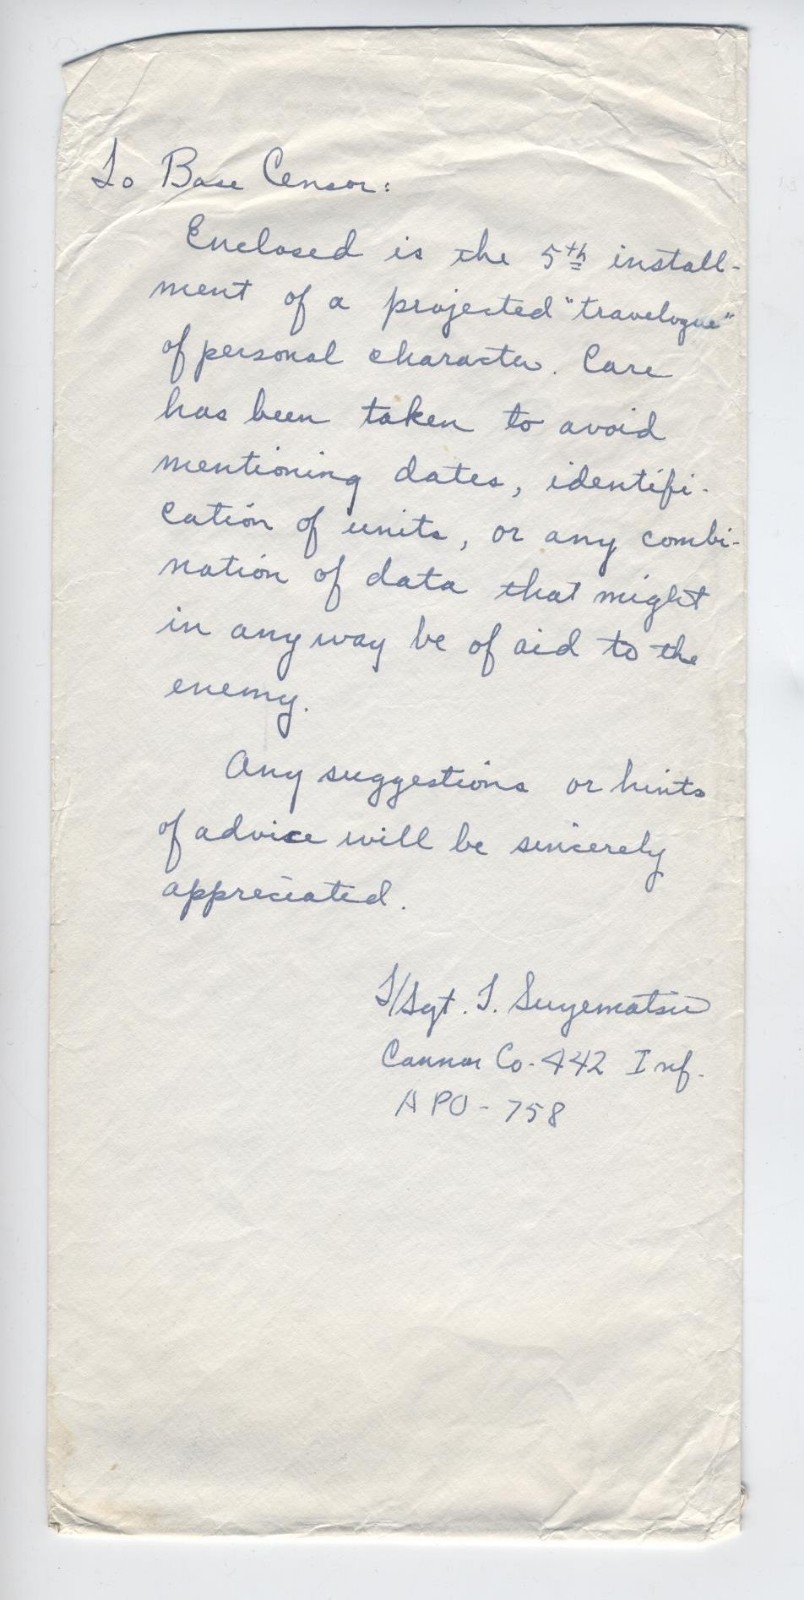 To Base Censor:
Enclosed is the 5th install-
ment of a projected "travelogue"
of personal character. Care
has been taken to avoid
mentioning dates, identifi-
cation of units, or any combi-
nation of data that might
in any way be of aid to the
enemy.
Any suggestions or hints
of advice will be sincerely
appreciated.
T/Sgt. T. Suyematsu
Cannon Co. 442 Inf.
APO - 758